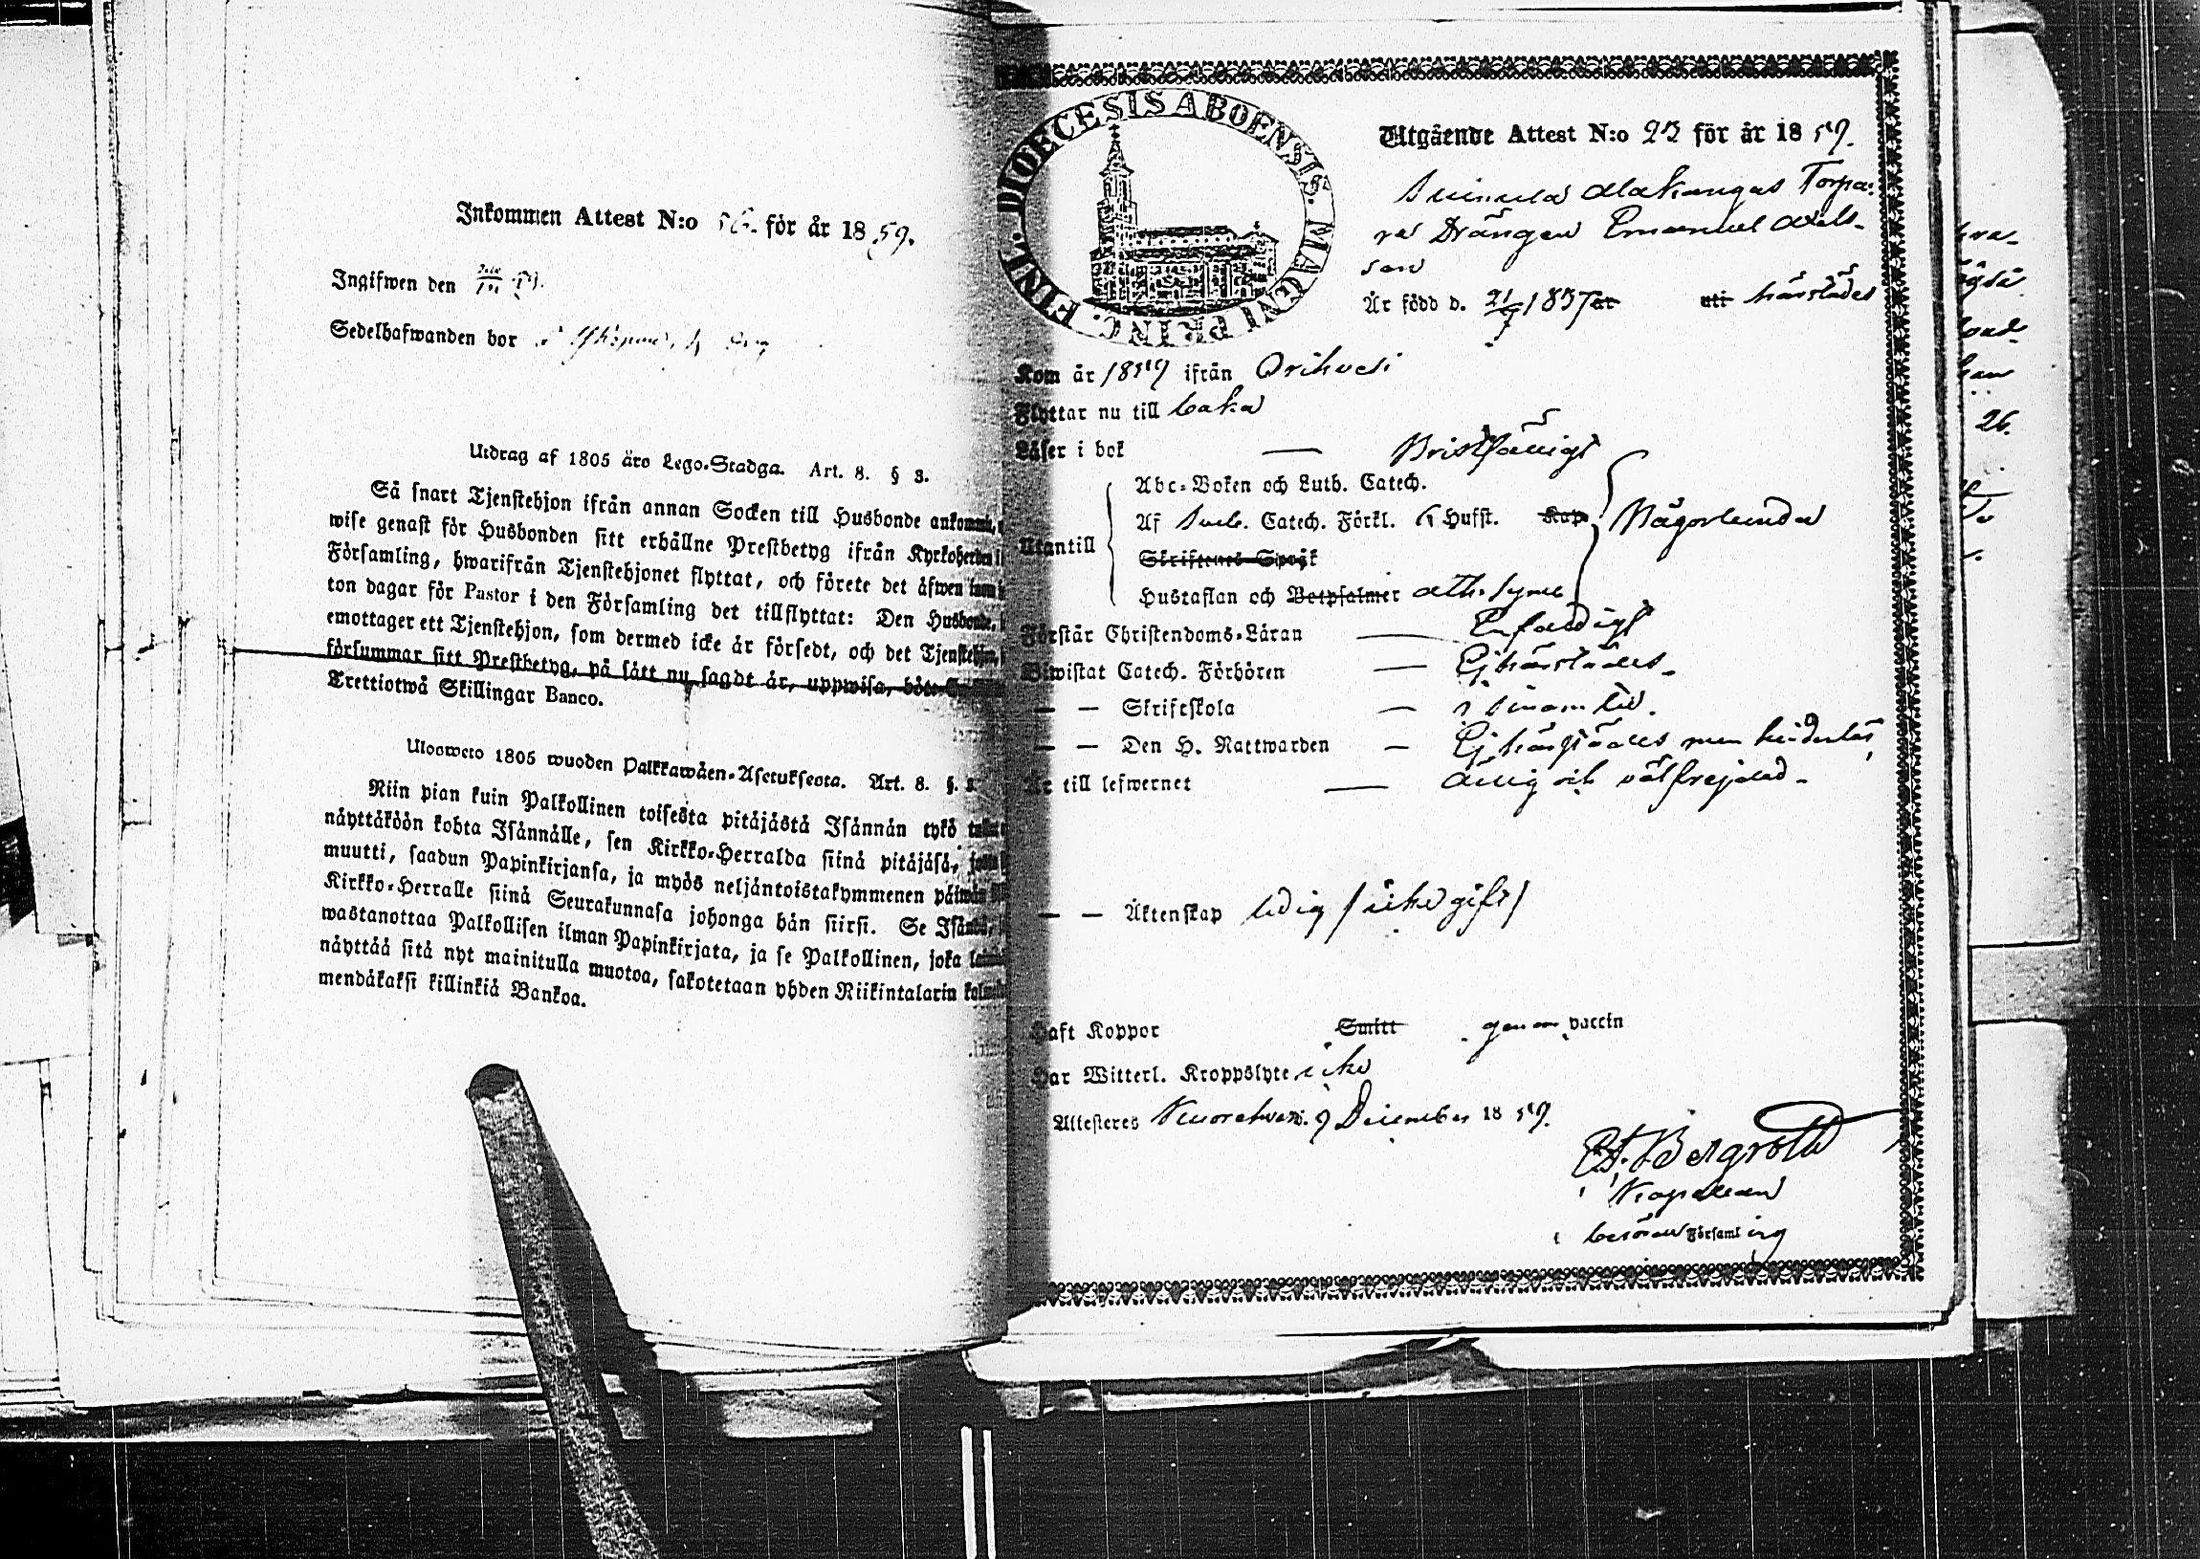 Inkommen Attest N:o 56. för år 1859.
Ingifwen den
Sedelhafwanden bor
Utdrag af 1805 års Lego-Stadga. Art. 8. § 3.
Så snart Tjenstehjon ifrån annan Socken till Husbonde ankommit,
wise genast för Husbonden sitt erhållne Prestbetyg ifrån Kyrkoherden i
Församling, hwarifrån Tjenstehjonet flyttat, och förete det äfwen inom
ton dagar för Pastor i den Församling det tillflyttat: Den Husbonde,
emottager ett Tjenstehjon, som dermed icke är försedt, och det Tjenstehjon,
försummar sitt Prestbetyg, på sätt nu sagdt är, uppwisa, böte
Trettiotwå Skillingar Banco.
Ulosweto 1805 wuoden Palkkawäen-Asetuksesta. Art. 8. §. 3.
Niin pian kuin Palkollinen toisesta pitäjästä Isännän tykö
näyttäköön kohta Isännälle, sen Kirkko-Herralda siinä pitäjäsä,
muutti, saadun Papinkirjansa, ja myös neljäntoistakymmenen päiwän
Kirkko-Herralle siinä Seurakunnasa johonga hän siirsi. Se Isäntä,
wastanottaa Palkollisen ilman Papinkirjata, ja se Palkollinen, joka
näyttää sitä nyt mainitulla muotoa, sakotetaan yhden Riikintalarin
mendäkaksi killinkiä Bankoa.
FINL. DIOECESIS ABOENSIS. MAGNI PRINC.
Utgående Attest N:o 23 för år 1859.
Alakangas Torpa-
re Drängen Emanuel Axels-
son
Är född d. 21/7 1837 är uti härstädes
Kom år 1859 ifrån Orihvesi
Flyttar nu till
Läser i bok — Bristfälligt
Abc-Boken och Luth. Catech.
Utantill Af Sveb. Catech. Förkl. 6 Hufst. Kap. Någorlunda
Skriftenes Språk
Hustaflan och Botpsalmer Ath. Symb.
Förstår Christendoms-Läran — Enfaldigt
Biwistat Catech. Förhören — Ej härstädes
— — Skriftskola — i sinom tid.
— — Den H. Nattwarden — Ej härstädes men hinderlös
Är till lefwernet — ärlig och välfrejdad
— — Äktenskap ledig /icke gift/
Haft Koppor Smitt genom vaccin
Har Witterl. Kroppslyte icke
Attesteres 9 December 1859.
Bergroth
Kapellan
Församling